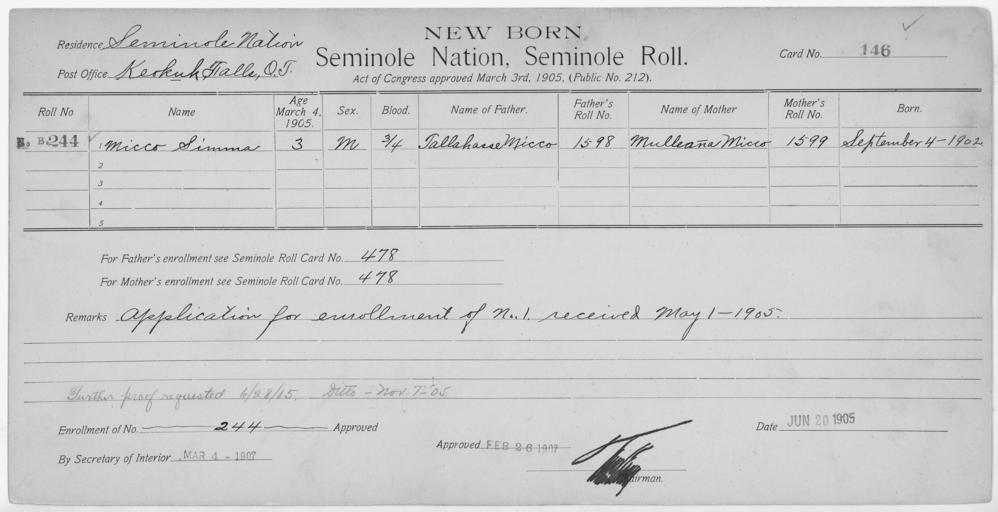 NEW BORN
Residence Seminole Nation
Seminole Nation, Seminole Roll.
Card No. 146
Post Office Keokuk Falls, O.T.
Act of Congress approved March 3rd, 1905, (Public No. 212).
Roll No Name Age March 4, 1905. Sex. Blood. Name of Father. Father's Roll No. Name of Mother Mother's Roll No. Born.
N. B. 244 1 Micco Simma 3 M 3/4 Tallahasse Micco 1598 Mulleaña Micco 1599 September 4-1902
2
3
4
5
For Father's enrollment see Seminole Roll Card No. 478
For Mother's enrollment see Seminole Roll Card No. 478
Remarks Application for enrollment of No.1. received May 1-1905.
Further proof requested 6/28/05. Ditto - Nov. 7-05
Enrollment of No. 244 Approved
By Secretary of Interior MAR 4 - 1907
Approved FEB 26 1907
Date JUN 20 1905